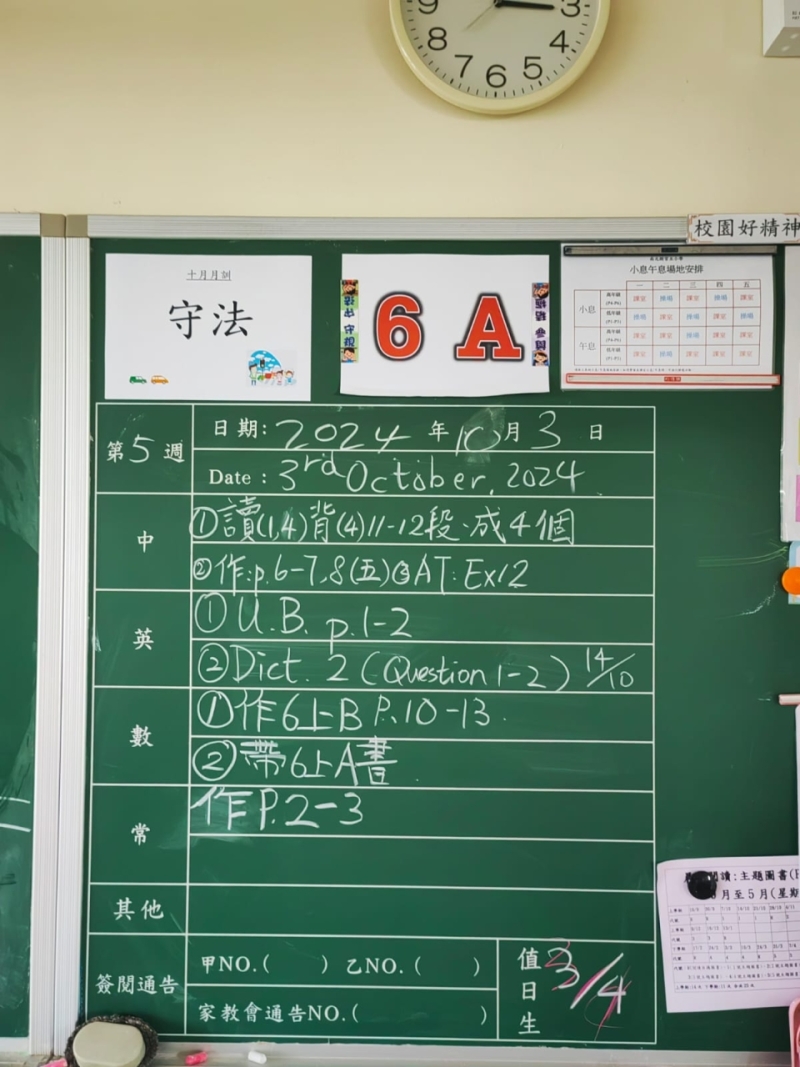 9 3
8 4
7 6 5
校園好精神
十月月訓
守法
6A
小息午息場地安排
一 二 三 四 五
小息
午息
第5週
日期: 2024 年 10 月 3 日
Date : 3rd October, 2024
中
①讀(1,4)背(4)11-12段、成4個
②作:p.6-7,8(五)③AT:Ex12
英
①U.B. p.1-2
②Dict. 2 (Question 1-2) 14/10
數
①作6上B P.10-13.
②帶6上A書.
常
作P.2-3
其他
簽閱通告
甲NO.( ) 乙NO.( )
家教會通告NO.( )
值日生
3/4
閱讀:主題圖書
月至5月(星期